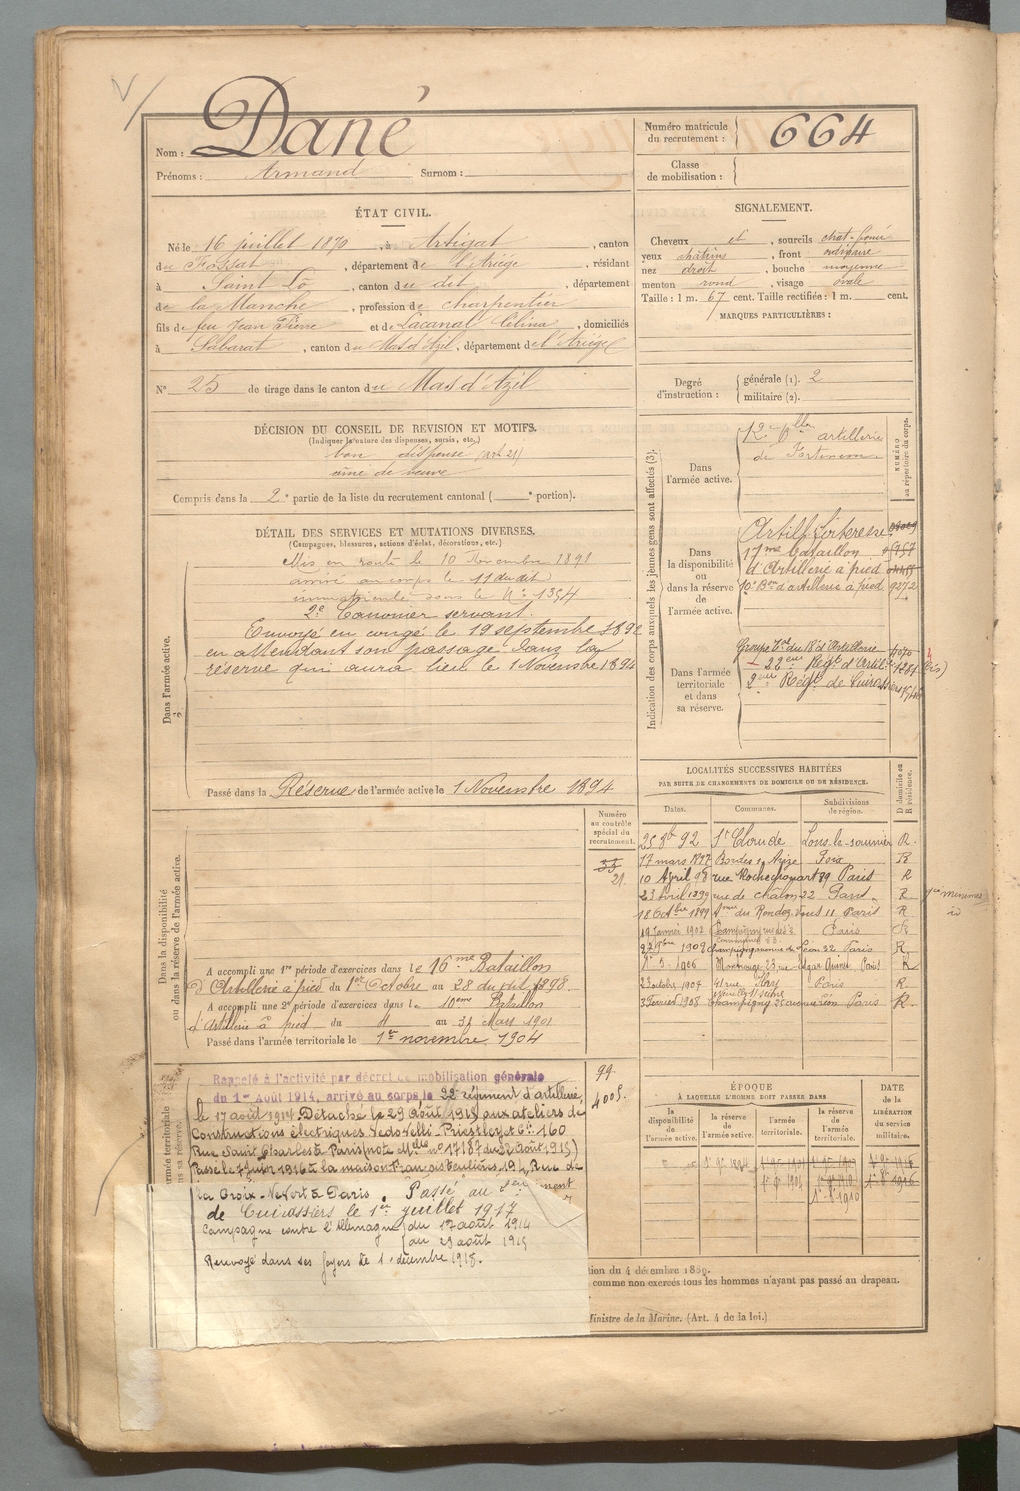 Nom : Dané
Prénoms : Armand Surnom :
Numéro matricule du recrutement : 664
Classe de mobilisation :
ÉTAT CIVIL.
Né le 16 juillet 1870, à Artigat, canton
du Fossat, département de l'Ariège, résidant
à Saint Lo, canton du dit, département
de la Manche, profession de charpentier
fils de feu Jean Pierre et de Lacanal Célina, domiciliés
à Sabarat, canton du Mas d'Azil, département de l'Ariège
N° 25 de tirage dans le canton du Mas d'Azil
SIGNALEMENT.
Cheveux et, sourcils chat. foncé
yeux châtains, front ordinaire
nez droit, bouche moyenne
menton rond, visage ovale
Taille : 1 m. 67 cent. Taille rectifiée : 1 m. cent.
MARQUES PARTICULIÈRES :
Degré d'instruction : générale (1). 2
militaire (2).
DÉCISION DU CONSEIL DE REVISION ET MOTIFS.
(Indiquer la nature des dispenses, sursis, etc.)
bon dispensé (art 21)
aîné de veuve
Compris dans la 2e partie de la liste du recrutement cantonal ( e portion).
DÉTAIL DES SERVICES ET MUTATIONS DIVERSES.
(Campagnes, blessures, actions d'éclat, décorations, etc.)
Dans l'armée active.
Mis en route le 10 Novembre 1891
arrivé au corps le 11 dudit
immatriculé sous le N° 1354
2e Canonier servant.
Envoyé en congé le 19 septembre 1892
en attendant son passage dans la
réserve qui aura lieu le 1 Novembre 1894
Passé dans la Réserve de l'armée active le 1 Novembre 1894
Indication des corps auxquels les jeunes gens sont affectés (3).
NUMÉRO au répertoire du corps.
Dans l'armée active.
12e Bllon artillerie
de Forteresse
Dans la disponibilité ou dans la réserve de l'armée active.
Artill Forteresse
17me bataillon
d'Artillerie à pied
10e Bon d'artillerie à pied 9272
Dans l'armée territoriale et dans sa réserve.
Groupe Tal du 18e d'Artillerie 4070
22eme Régt d'Artil.
2eme Régt de Cuirassiers
LOCALITÉS SUCCESSIVES HABITÉES
PAR SUITE DE CHANGEMENTS DE DOMICILE OU DE RÉSIDENCE.
Dates. Communes. Subdivisions de région. D domicile ou R résidence.
25 8b 92 St Claude Lons-le-saunier R.
17 mars 1897 Bordes s. Arize Foix R
10 Avril 98 rue Rochechouart 89 Paris R
23 Avril 1899 rue de châlon 22 Paris R
18 Octbre 1899 rue du Rendez-Vous 11 Paris R
19 Janvier 1902 Champigny Paris R
Champigny avenue de Léon 32 Paris R
Montrouge 23, rue Edgar Quinet Paris R
23 octobre 1907 41 rue Paris R
3 Février 1908 Champigny Paris R
Dans la disponibilité ou dans la réserve de l'armée active.
Numéro au contrôle spécial du recrutement.
21.
A accompli une 1re période d'exercices dans le 16me Bataillon
d'Artillerie à pied du 1er Octobre au 28 du dit 1898
A accompli une 2e période d'exercices dans le 10eme Bataillon
d'Artillerie à pied du 4 au 31 Mars 1901
Passé dans l'armée territoriale le 1er novembre 1904
99
4005.
Rappelé à l'activité par décret de mobilisation générale
du 1er Août 1914, arrivé au corps le 22e régiment d'artillerie,
le 17 août 1914. Détaché le 29 Août 1915 aux ateliers de
Constructions électriques Vedovelli-Priestley et Cie 160
Rue Saint Charles à Paris (note Mlle n° 17187 du 22 Août 1915)
Passé le 7 Juin 1916 à la maison Rue de
la Croix-Nivert à Paris. Passé au 2eme
de Cuirassiers le 1er juillet 1917
Campagne contre l'Allemagne du 17 août 1914
au 29 août 1915
Renvoyé dans ses foyers le 1 décembre 1918.
ÉPOQUE
À LAQUELLE L'HOMME DOIT PASSER DANS
la disponibilité de l'armée active.
la réserve de l'armée active.
l'armée territoriale.
la réserve de l'armée territoriale.
DATE de la LIBÉRATION du service militaire.
1er 9bre 1894
tion du 4 décembre 1889.
comme non exercés tous les hommes n'ayant pas passé au drapeau.
Ministre de la Marine. (Art. 4 de la loi.)